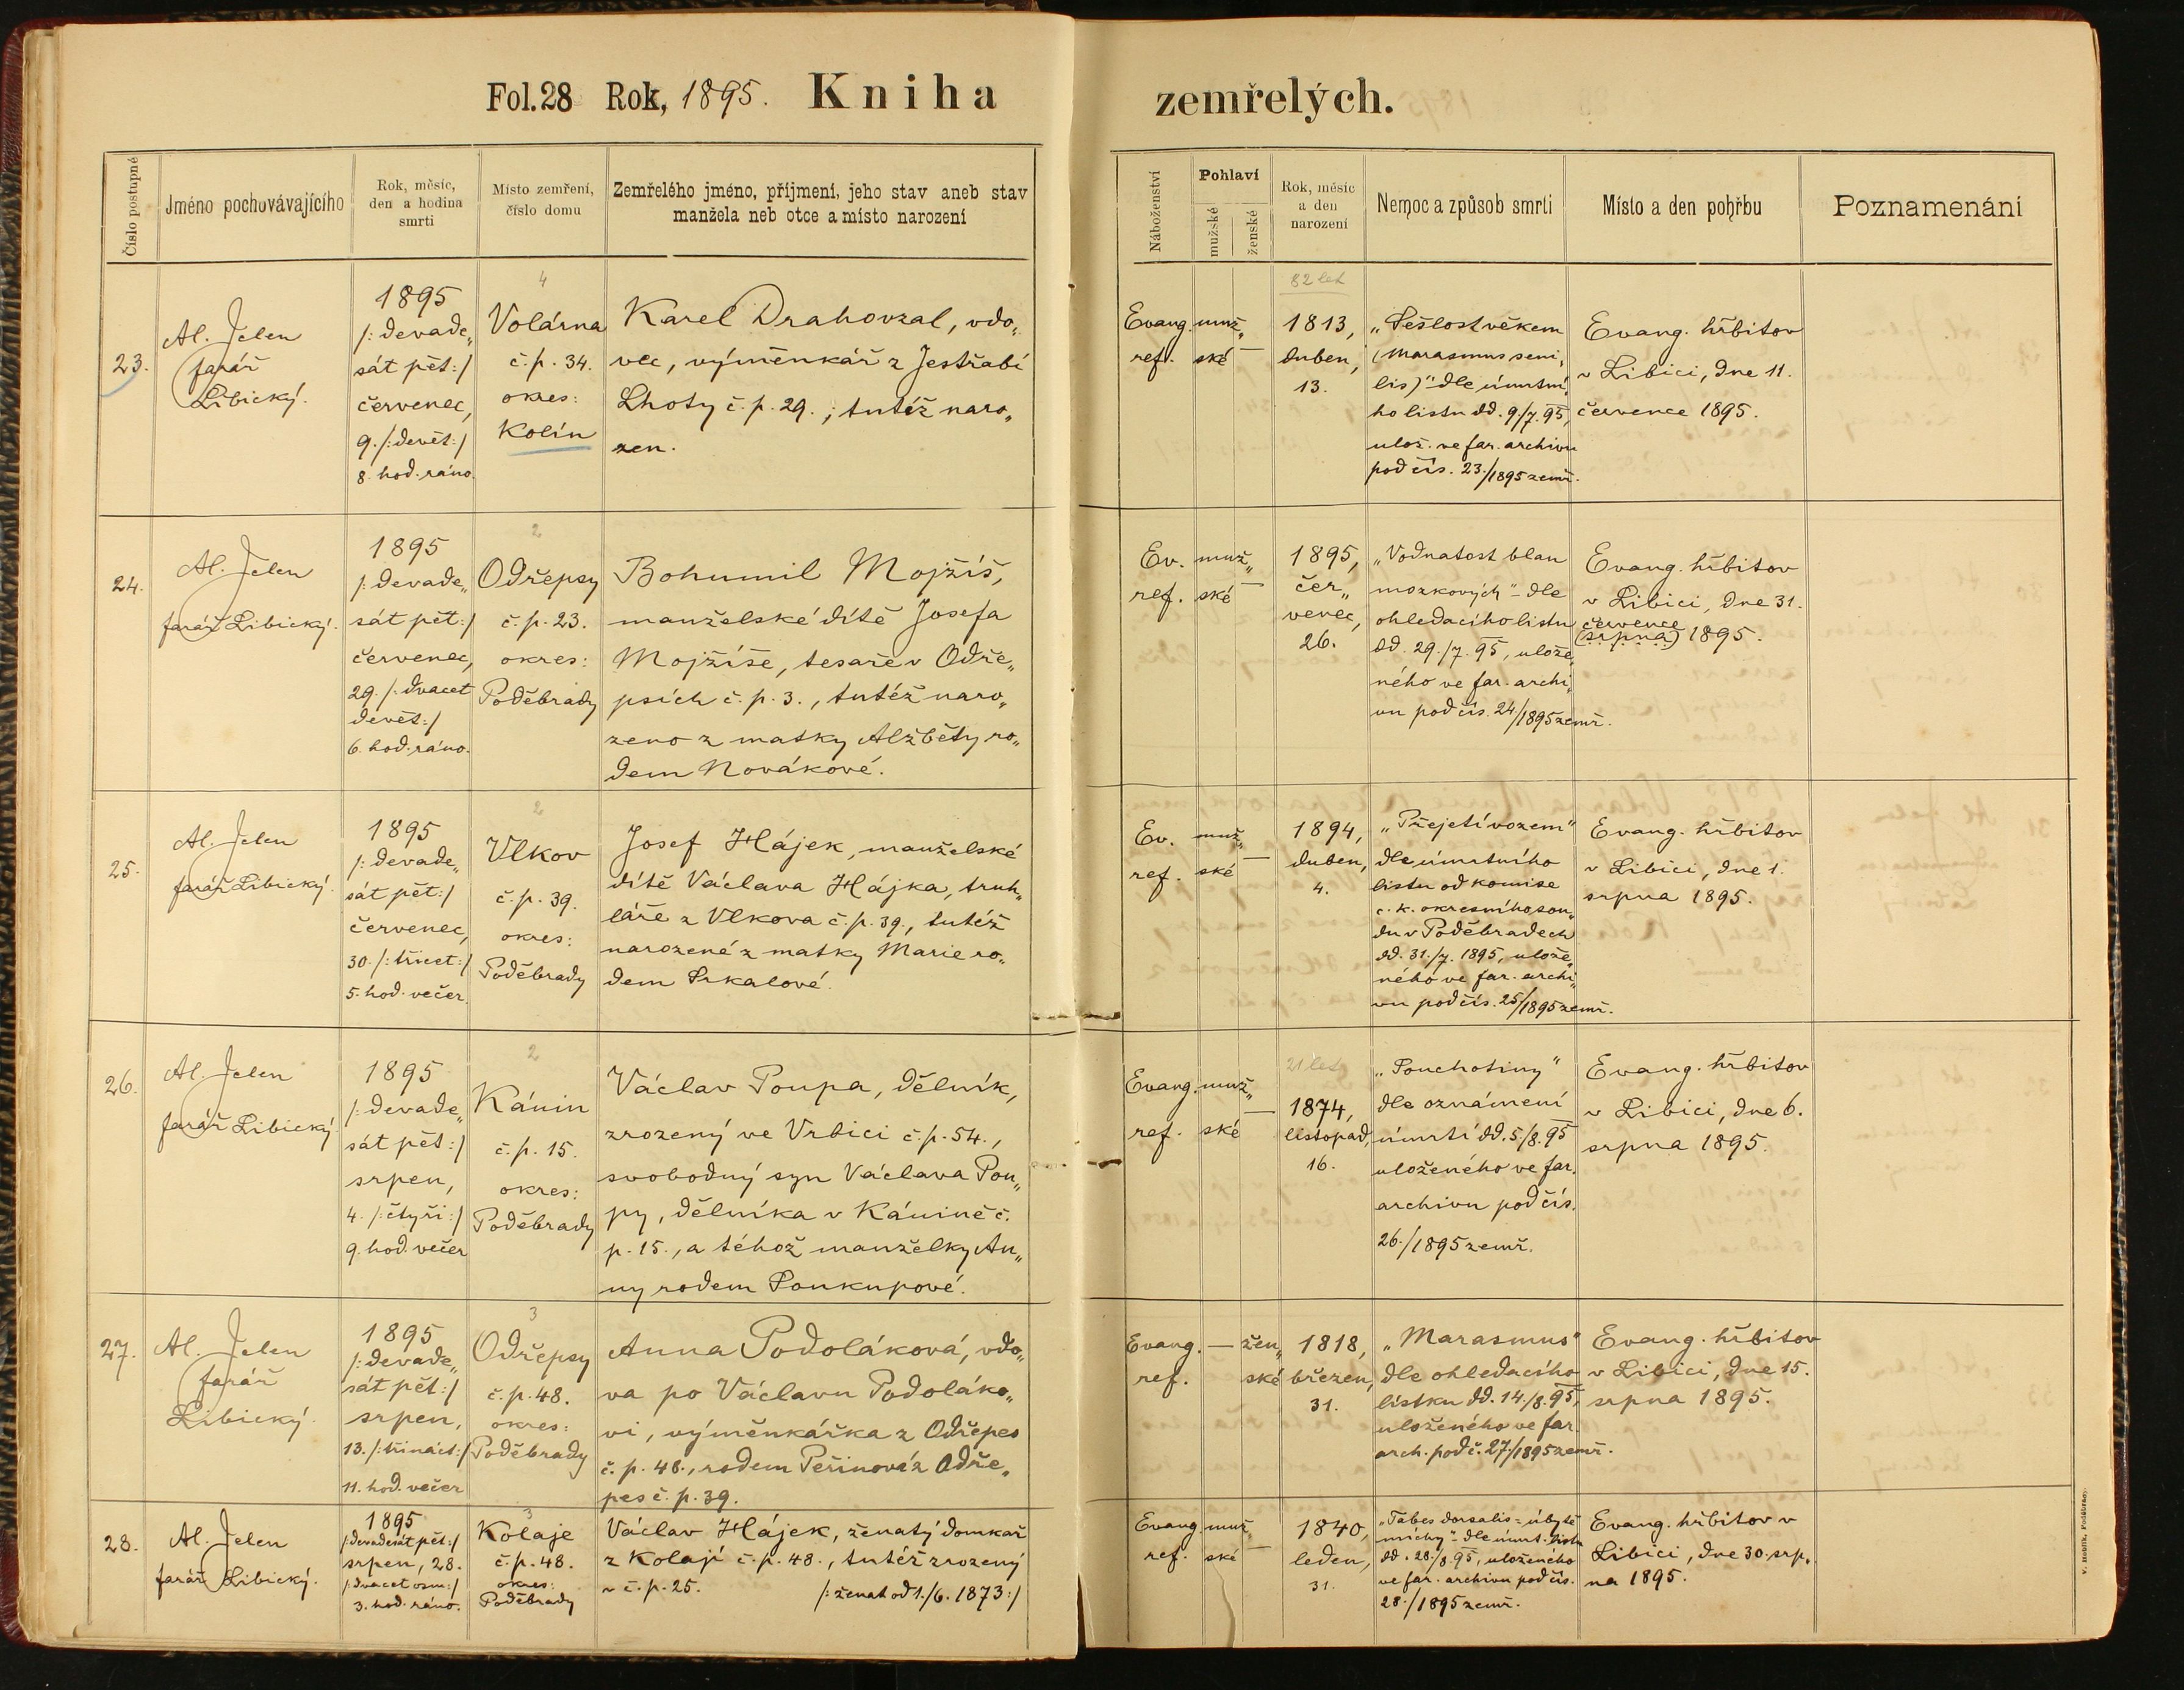 Fol. 28 Rok, 1895. Kniha zemřelých.
Číslo postupné
Jméno pochovávajícího
Rok, měsíc,
den a hodina
smrti
Místo zemření,
číslo domu
Zemřelého jméno, příjmení, jeho stav aneb stav
manžela neb otce a místo narození
Náboženství
Pohlaví
mužské
ženské
Rok, měsíc
a den
narození
Nemoc a způsob smrti
Místo a den pohřbu
Poznamenání
23.
Al. Jelen
farář
Libický.
1895
/: devade„
sát pět :/
červenec,
9. /: devět :/
8. hod. ráno.
4
Volárna
č. p. 34.
okres:
Kolín
Karel Drahovzal, vdo„
vec, výměnkář z Jestřabí
Lhoty č. p. 29., tutéž naro„
zen.
Evang.
ref.
muž„
ské
—
82 let
1813,
duben,
13.
„Sešlost věkem
(Marasmus seni„
lis)" - dle úmrtní„
ho listu dd. 9./7. 95,
ulož. ve far. archivu
pod čís. 23./1895 zemř.
Evang. hřbitov
v Libici, dne 11.
července 1895.
24.
Al. Jelen
farář Libický.
1895
/: devade„
sát pět :/
červenec,
29. /: dvacet
devět :/
6. hod. ráno.
2
Odřepsy
č. p. 23.
okres:
Poděbrady
Bohumil Mojžíš,
manželské dítě Josefa
Mojžíše, tesaře v Odře„
psích č. p. 3., tutéž naro„
zeno z matky Alžběty ro„
dem Novákové.
Ev.
ref.
muž„
ské
—
1895,
čer„
venec,
26.
„Vodnatost blan
mozkových" - dle
ohledacího listu
dd. 29./7. 95, ulože„
ného ve far. archi„
vu pod čís. 24/1895 zemř.
Evang. hřbitov
v Libici, dne 31.
července
(srpna) 1895.
25.
Al. Jelen
farář Libický.
1895
/: devade„
sát pět :/
červenec,
30. /: třicet :/
5. hod. večer.
2
Vlkov
č. p. 39.
okres:
Poděbrady
Josef Hájek, manželské
dítě Václava Hájka, truh„
láře z Vlkova č. p. 39., tutéž
narozené z matky Marie ro„
dem Srkalové.
Ev.
ref.
muž„
ské
—
1894,
duben,
4.
„Přejetí vozem"
dle úmrtního
listu od komise
c. k. okresního sou„
du v Poděbradech
dd. 31./7. 1895, ulože„
ného ve far. archi„
vu pod čís. 25/1895 zemř.
Evang. hřbitov
v Libici, dne 1.
srpna 1895.
26.
Al. Jelen
farář Libický.
1895
/: devade„
sát pět :/
srpen,
4. /: čtyři :/
9. hod. večer
2
Kánin
č. p. 15.
okres:
Poděbrady
Václav Poupa, dělník,
zrozený ve Vrbici č. p. 54.,
svobodný syn Václava Pou„
py, dělníka v Káníně č.
p. 15., a téhož manželky An„
ny rodem Soukupové.
Evang.
ref.
muž„
ské
—
21 let
1874,
listopad,
16.
„Souchotiny"
dle oznámení
úmrtí dd. 5/8. 95
uloženého ve far.
archivu pod čís.
26./1895 zemř.
Evang. hřbitov
v Libici, dne 6.
srpna 1895.
27.
Al. Jelen
farář
Libický.
1895
/: devade„
sát pět :/
srpen,
13. /: třináct :/
11. hod. večer
3
Odřepsy
č. p. 48.
okres:
Poděbrady
Anna Podoláková, vdo„
va po Václavu Podoláko„
vi, výměnkářka z Odřepes
č. p. 48., rodem Peřinová z Odře„
pes č. p. 39.
Evang.
ref.
—
žen„
ské
1818,
březen,
31.
„Marasmus"
dle ohledacího
lístku dd. 14./8. 95,
uloženého ve far.
arch. pod č. 27./1895 zemř.
Evang. hřbitov
v Libici, dne 15.
srpna 1895.
28.
Al. Jelen
farář Libický.
1895
/: devadesát pět :/
srpen, 28.
/: dvacet osm :/
3. hod. ráno.
3
Kolaje
č. p. 48.
okres:
Poděbrady
Václav Hájek, ženatý domkař
z Kolají č. p. 48., tutéž zrozený
v č. p. 25. /: ženat od 1./6. 1873 :/
Evang.
ref.
muž„
ské
—
1840,
leden,
31.
„Tabes dorsalis = úbytě
míchy" - dle úmrt. listu
dd. 28./8. 95, uloženého
ve far. archivu pod čís.
28./1895 zemř.
Evang. hřbitov v
Libici, dne 30. srp„
na 1895.